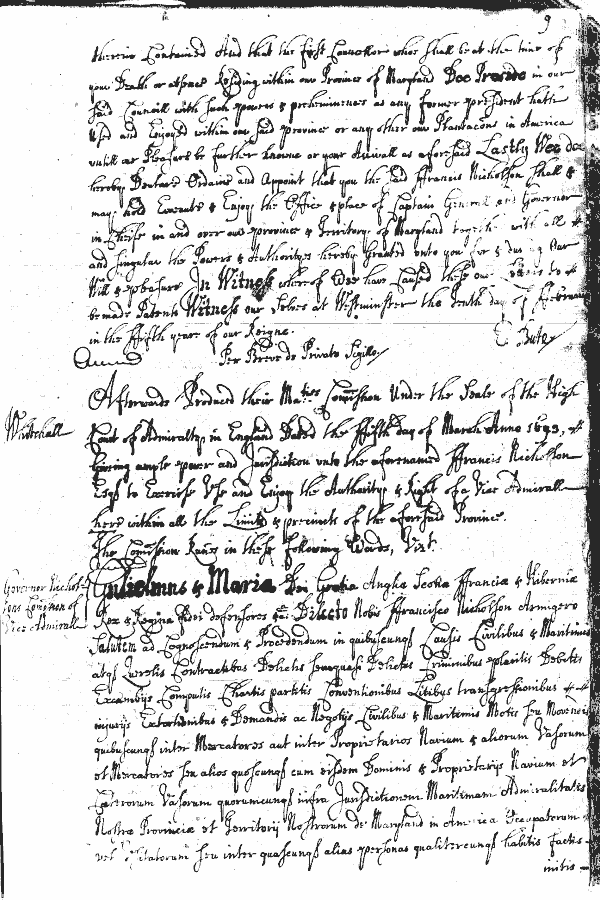 9
therein Contained And that the first Councellor who shall be at the time of
your Death or absence Residing within our Province of Maryland Doe Preside in our
said Councill with such powers & preheminences as any former president hath
Used and Enjoyed within our said province or any other our Plantacons in America
untill our Pleasure be further knowne or your Arrivall as aforesaid Lastly Wee doe
hereby Declare Ordaine and Appoint that you the said ffrancis Nicholson shall &
may hold Execute & Enjoy the Office & place of Captain Generall and Governor
in Cheife in and over our province & Territory of Maryland together with all
and singular the Powers & Authoritys hereby Granted unto you for & during Our
Will & pleasure In Witness whereof Wee have Caused these our to
be made Patents Witness our Selves at Westminster the tenth day of ffebruary
in the fifth yeare of our Reigne.
Per Breve de Privato Sigillo
Afterwards Produced their Maties Comission Under the Seale of the High
Whitehall
Court of Admiralty in England Dated the ffifth day of March Anno 1693,
Giving ample power and Jurisdiction unto the aforenamed ffrancis Nicholson
Esqr to Exercise Use and Enjoy the Authority & Right of a Vice Admirall
here within all the Limitts & precincts of the aforesaid Province.
The Comission Runs in these following Words, Vizt.
Governor Nichol-
sons Comission of
Vice Admirall
Gulielmus & Maria Dei Gratia Angliae Scotiae ffranciae & Hiberniae
Rex & Regina fidei defensores &c: Dilecto Nobis ffrancisco Nicholson Armigero
Salutem ad Cognoscendum & Procedendum in quibuscunqs Causis Civilibus & Maritimis
atqs Querelis Contractibus Delictis seu quasi Delictis Criminibus placitis Debitis
Excambijs Computis Chartis partitis Conventionibus Litibus transgressionibus
injurijs Extortionibus & Demandis ac Negotijs Civilibus & Maritimis Motis seu Movendis
quibuscunqs inter Mercatores aut inter Proprietarios Navium & aliorum Vasorum
et Mercatores seu alios quoscunqs cum eisdem Dominis & Proprietarijs Navium et
Caeterorum Vasorum quorumcunqs infra Jurisdictionem Maritimam Admiralitatis
Nostrae Provinciae et Territorij Nostrorum de Maryland in America Occupatorum
vel seu inter quascunqs alias personas qualitercunqs habitis factis
initis